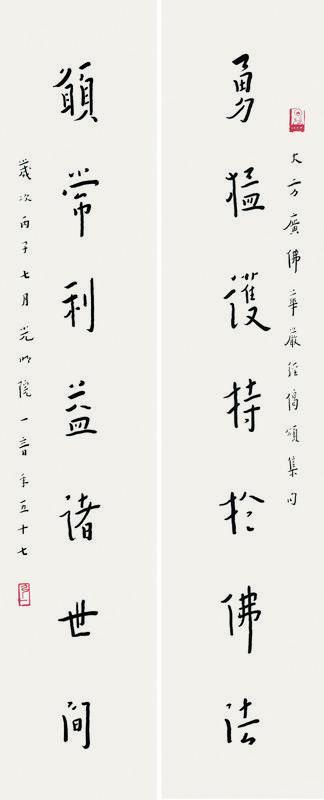 大方廣佛華嚴經偈頌集句
勇猛護持於佛法
願常利益諸世間
歲次丙子七月光明院一音年五十七